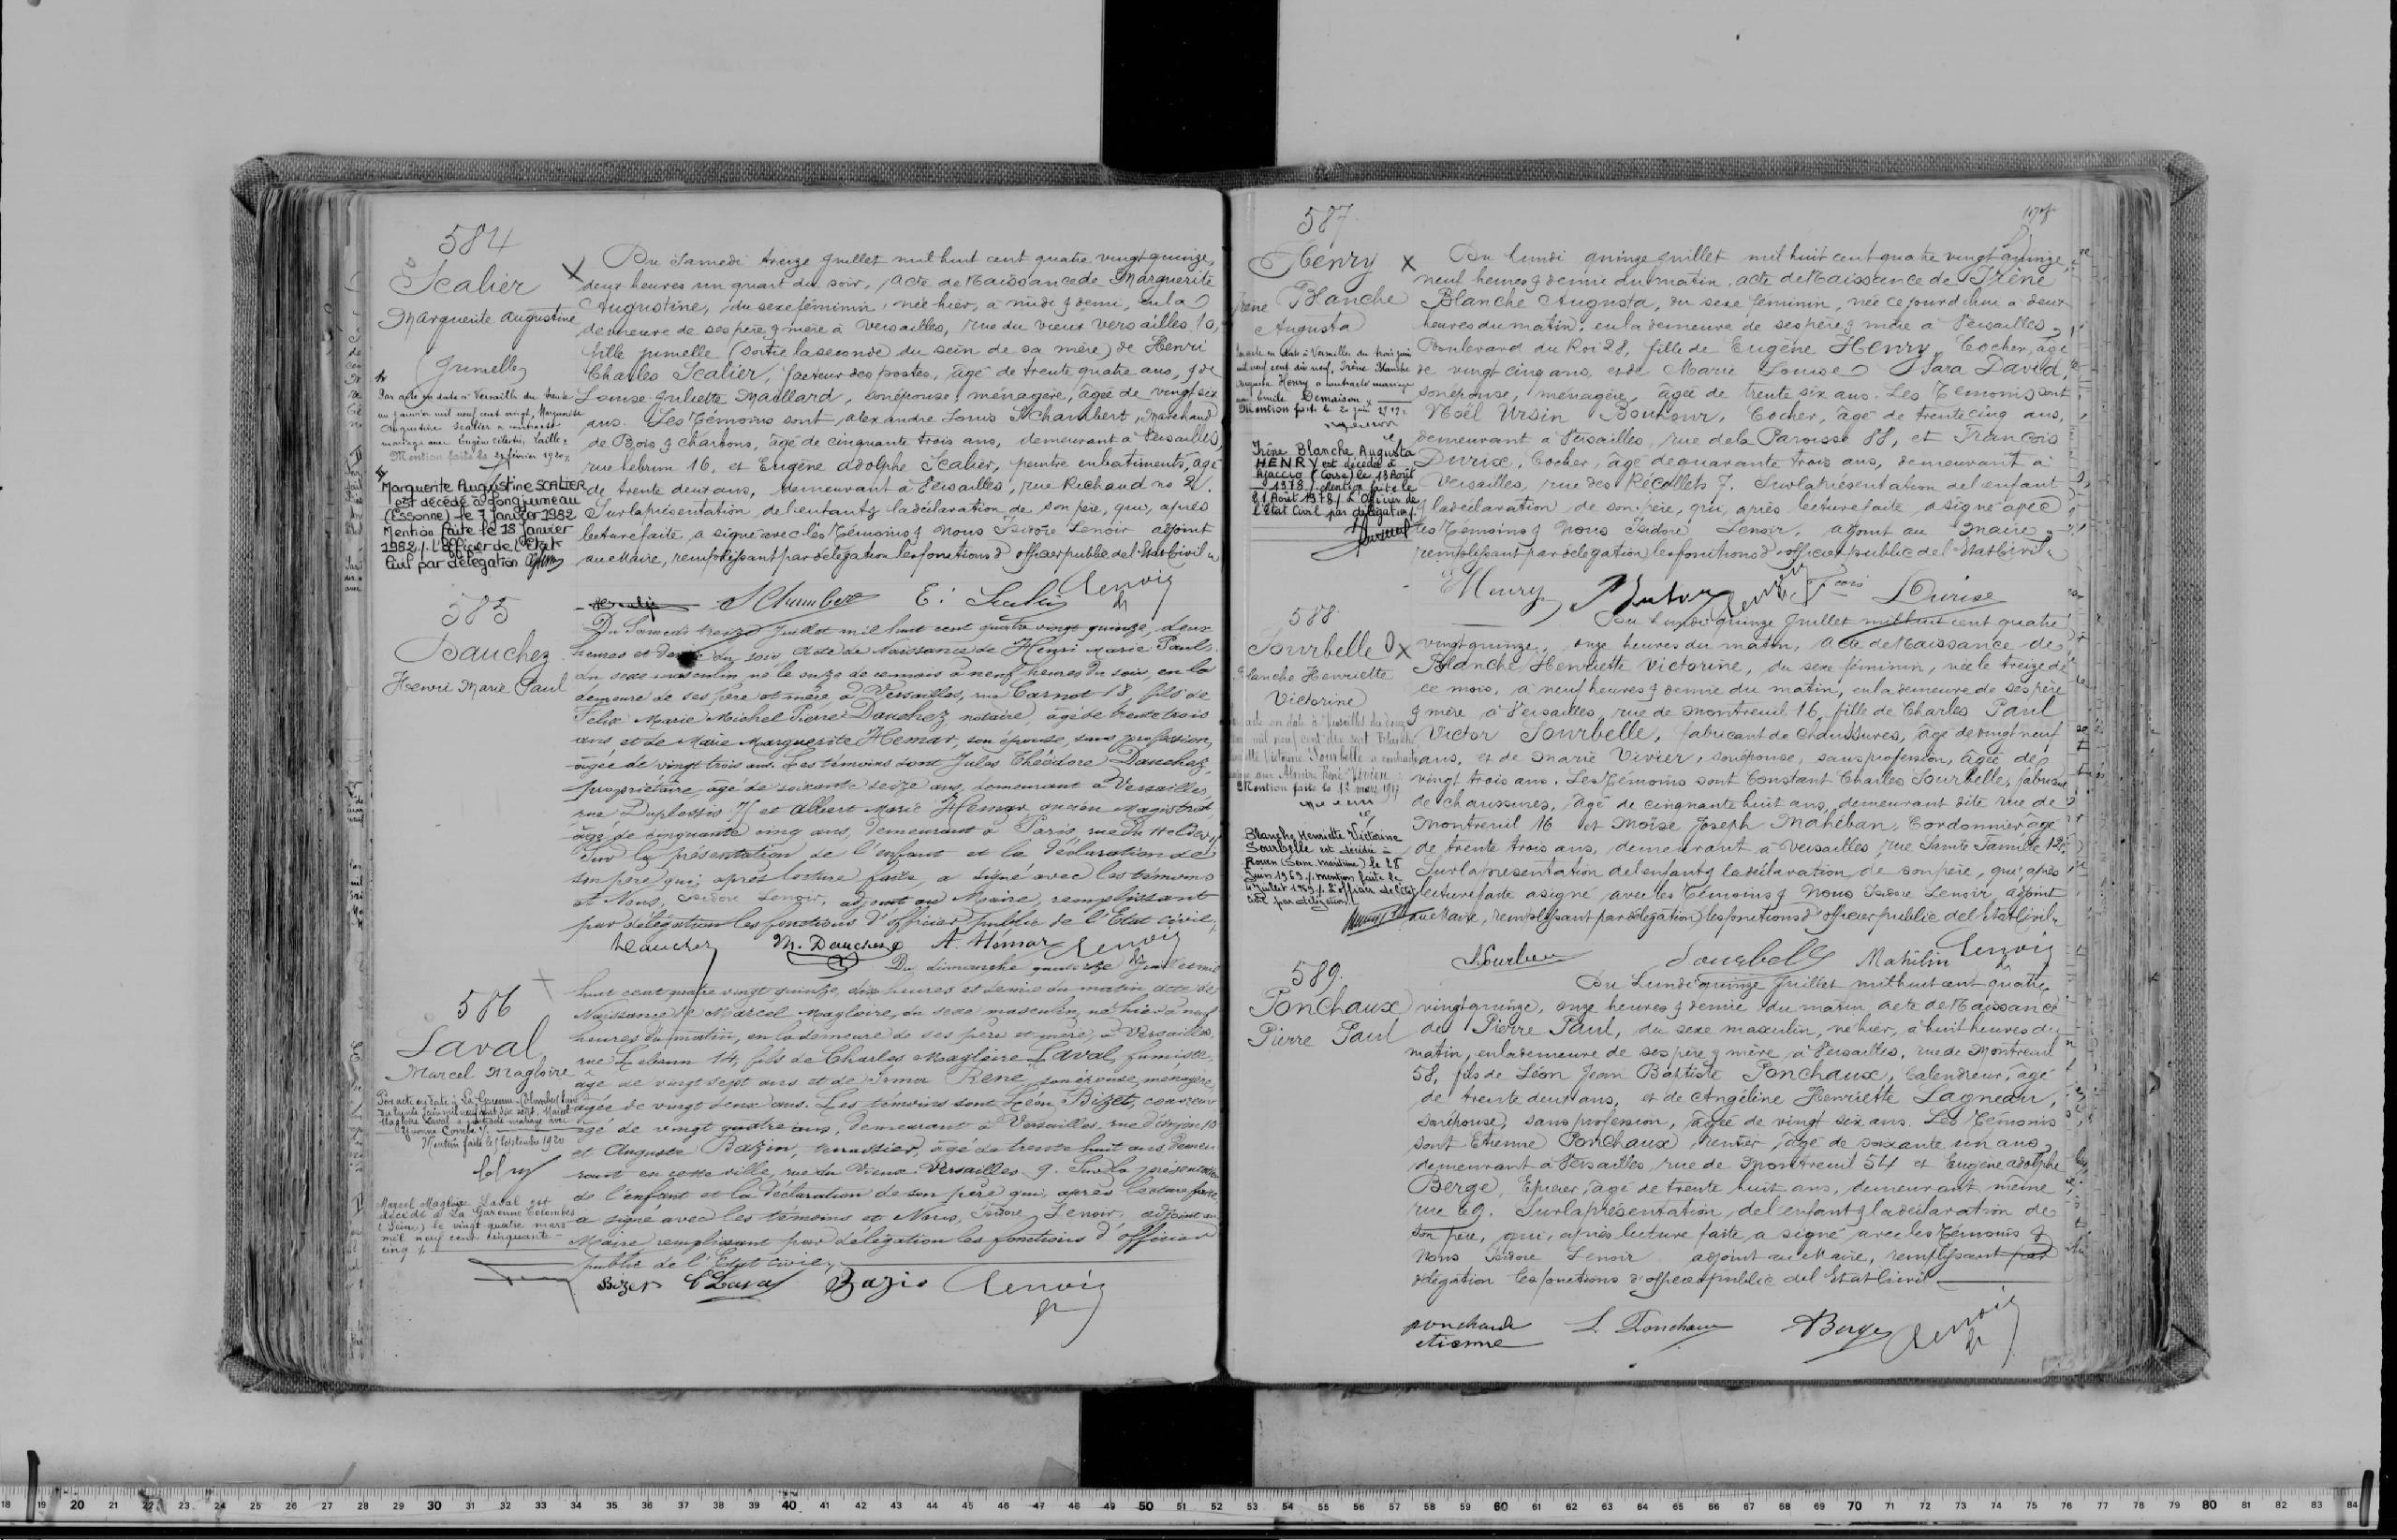 584
Scalier
Marguerite Augustine
(Jumelle)
Par acte en date à Versailles du trente
un janvier mil neuf cent vingt, Marguerite
Augustine Scalier a contracté
mariage avec Eugène Célestin
Mention faite le février 1920
Marguerite Augustine SCALIER
est décédé à Longjumeau
(Essonne) le 7 Janvier 1982
Mention faite le 18 Janvier
1982 /. L'officier de l'Etat
Civil par délégation
Du Samedi treize Juillet mil huit cent quatre vingt quinze,
deux heures un quart du soir, Acte de Naissance de Marguerite
Augustine, du sexe féminin, née hier, à midi & demi, en la
demeure de ses père & mère à Versailles, rue du vieux Versailles 10,
fille jumelle (sortie la seconde du sein de sa mère) de Henri
Charles Scalier, facteur des postes, âgé de trente quatre ans, & de
Louise Juliette Maillard, son épouse, ménagère, âgée de vingt six
ans. Les Témoins sont Alexandre Louis Schambert, Marchand
de Bois & charbons, âgé de cinquante trois ans, demeurant à Versailles,
rue Lebrun 16, et Eugène Adolphe Scalier, peintre en batiments, âgé
de trente deux ans, demeurant à Versailles, rue Richaud no 2.
Sur la présentation de l'enfant & la déclaration de son père, qui, après
lecture faite, a signé avec les Témoins & Nous Isidore Lenoir adjoint
au Maire, remplissant par délégation les fonctions d'officier public de l'Etat Civil
Schambert E. Scalier Lenoir
585
Dauchez
Henri Marie Paul
Du Samedi treize Juillet mil huit cent quatre vingt quinze, deux
heures et demie du soir Acte de Naissance de Henri Marie Paul,
du sexe masculin né le onze de ce mois à neuf heures du soir, en la
demeure de ses père et mère, à Versailles, rue Carnot 18, fils de
Félix Marie Michel Pierre Dauchez, notaire, âgé de trente trois
ans, et de Marie Marguerite Hemar, son épouse, sans profession,
âgée de vingt trois ans. Les témoins sont Jules Théodore Dauchez,
propriétaire âgé de soixante seize ans, demeurant à Versailles,
rue Duplessis 7 et Albert Marie Hemar, ancien Magistrat,
âgé de cinquante cinq ans, demeurant à Paris, rue du Helder
Sur la présentation de l'enfant et la déclaration de
son père qui, après lecture faite, a signé avec les témoins
et Nous, Isidore Lenoir, adjoint au Maire, remplissant
par délégation les fonctions d'officier public de l'Etat civil,
Dauchez M. Dauchez A. Hémar Lenoir
586
Laval
Marcel Magloire
Par acte en date à La Garenne-Colombes
Magloire Laval a contracté mariage avec
Yvonne
Mention faite le Septembre 1920
Marcel Magloire Laval est
décédé à La Garenne Colombes
(Seine) le vingt quatre mars
mil neuf cent cinquante
cinq /.
Du dimanche quatorze Juillet mil
huit cent quatre vingt quinze, dix heures et demie du matin acte de
Naissance de Marcel Magloire, du sexe masculin, né hier à neuf
heures du matin, en la demeure de ses père et mère, à Versailles,
rue Lebrun 14, fils de Charles Magloire Laval, fumiste,
âgé de vingt sept ans et de Irma René, son épouse, ménagère,
âgée de vingt deux ans. Les témoins sont Léon Bizet, couvreur
âgé de vingt quatre ans, demeurant à Versailles, rue d'Anjou 10
et Auguste Bazin, terrassier, âgé de trente huit ans, demeu-
rant en cette ville, rue du Vieux Versailles 9. Sur la présentation
de l'enfant et la déclaration de son père qui, après lecture faite
a signé avec les témoins et Nous, Isidore Lenoir, adjoint au
Maire remplissant par délégation les fonctions d'officier
public de l'Etat civil,
Bizet C Laval Bazin Lenoir
587
Henry
Irène Blanche
Augusta
Par acte en date à Versailles du trois juin
mil neuf cent dix neuf, Irène Blanche
Augusta Henry a contracté mariage
avec Emile Demaison
Mention faite le 2 juin 1919
Irène Blanche Augusta
HENRY est décédée à
Ajaccio (Corse) le 18 Août
1978 /. Mention faite le
21 Août 1978 /. L'Officier de
l'Etat Civil par délégation /.
Du Lundi quinze Juillet mil huit cent quatre vingt quinze,
neuf heures & demie du matin, acte de Naissance de Irène
Blanche Augusta, du sexe féminin, née ce jourd'hui à deux
heures du matin, en la demeure de ses père & mère à Versailles,
Boulevard du Roi 28, fille de Eugène Henry, Cocher, âgé
de vingt cinq ans, et de Marie Louise Sara David,
son épouse, ménagère, âgée de trente six ans. Les Témoins sont
Noël Ursin Bontour, Cocher, âgé de trente cinq ans,
demeurant à Versailles, rue de la Paroisse 88, et François
Durix, Cocher, âgé de quarante trois ans, demeurant à
Versailles, rue des Récollets 7. Sur la présentation de l'enfant
& la déclaration de son père, qui, après lecture faite a signé avec
les Témoins & Nous Isidore Lenoir, adjoint au Maire,
remplissant par délégation les fonctions d'officier public de l'Etat Civil
E Henry Lenoir Fcois Durix
588
Sourbelle
Blanche Henriette
Victorine
Mention faite le 12 mars 1917
Blanche Henriette Victorine
Sourbelle est décédée à
Rouen (Seine Maritime) le 28
Juin 1969 /. Mention faite le
4 Juillet 1969 /. L'officier de l'état
civil par délégation /.
Du Lundi quinze Juillet mil huit cent quatre
vingt quinze, onze heures du matin, Acte de Naissance de
Blanche Henriette Victorine, du sexe féminin, née le treize de
ce mois, à neuf heures & demie du matin, en la demeure de ses père
& mère à Versailles, rue de Montreuil 16, fille de Charles Paul
Victor Sourbelle, fabricant de Chaussures, âgé de vingt neuf
ans, et de Marie Vivier, son épouse, sans profession, âgée de
vingt trois ans. Les Témoins sont Constant Charles Sourbelle, fabricant
de chaussures, âgé de cinquante huit ans, demeurant dite rue de
Montreuil 16 et Moïse Joseph Mahéban, Cordonnier âgé
de trente trois ans, demeurant à Versailles, rue Sainte Famille 12.
Sur la présentation de l'enfant & la déclaration de son père, qui, après
lecture faite a signé avec les Témoins & Nous Isidore Lenoir adjoint
au Maire, remplissant par délégation les fonctions d'officier public de l'Etat Civil
Sourbelle Lenoir
589
Ponchaux
Pierre Paul
Du Lundi quinze Juillet mil huit cent quatre
vingt quinze, onze heures & demie du matin acte de Naissance
de Pierre Paul, du sexe masculin, né hier, à huit heures du
matin, en la demeure de ses père & mère à Versailles, rue de Montreuil
58, fils de Léon Jean Baptiste Ponchaux, Calendreur, âgé
de trente deux ans, et de Angéline Henriette Lagneau,
son épouse, sans profession, âgée de vingt six ans. Les Témoins
sont Etienne Ponchaux, rentier, âgé de soixante un ans,
demeurant à Versailles, rue de Montreuil 54 et Eugène Adolphe
Berge, Epicier, âgé de trente huit ans, demeurant même
rue 69. Sur la présentation de l'enfant & la déclaration de
son père, qui, après lecture faite, a signé avec les Témoins &
Nous Isidore Lenoir adjoint au Maire, remplissant par
délégation les fonctions d'officier public de l'Etat Civil
ponchaux
etienne
L. Ponchaux Berge Lenoir
18 19 20 21 22 23 24 25 26 27 28 29 30 31 32 33 34 35 36 37 38 39 40 41 42 43 44 45 46 47 48 49 50 51 52 53 54 55 56 57 58 59 60 61 62 63 64 65 66 67 68 69 70 71 72 73 74 75 76 77 78 79 80 81 82 83 84